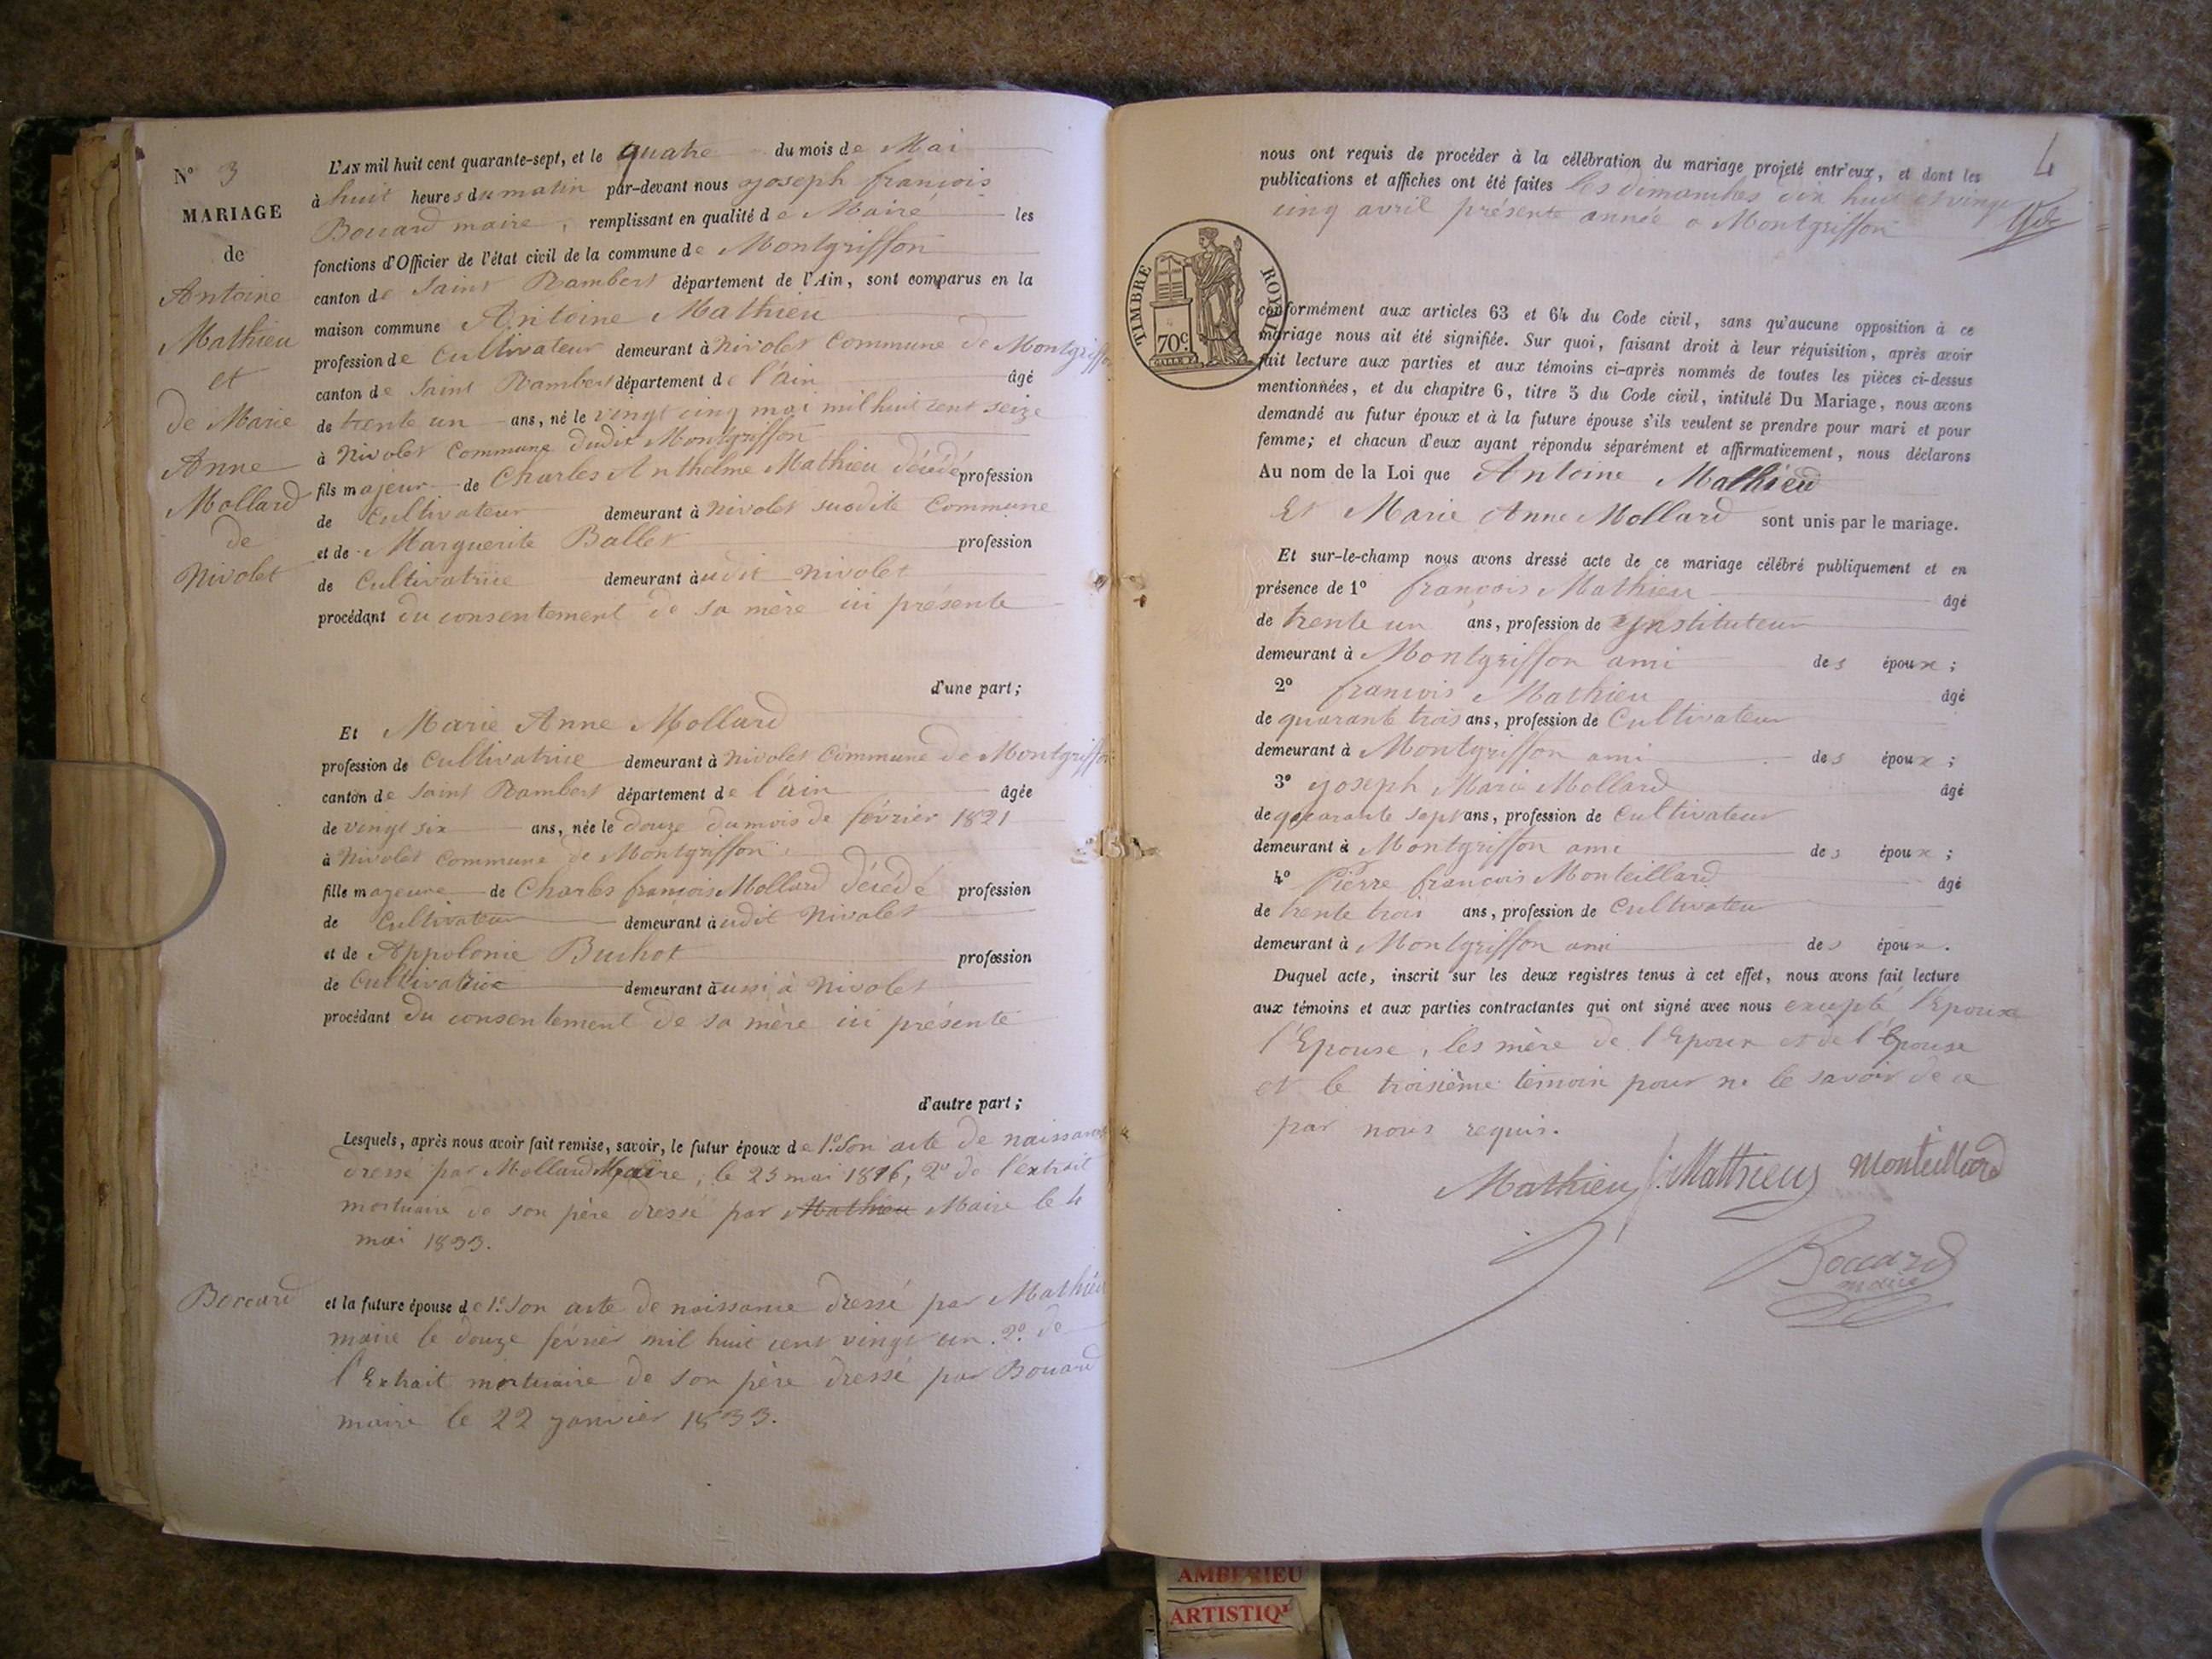 N° 3
MARIAGE
de
Antoine
Mathieu
et
de Marie
Anne
Mollard
de
Nivolet
L'AN mil huit cent quarante-sept, et le quatre du mois de Mai
à huit heures du matin par-devant nous Joseph françois
Boccard maire, remplissant en qualité de Maire les
fonctions d'Officier de l'état civil de la commune de Montgriffon
canton de Saint Rambert département de l'Ain, sont comparus en la
maison commune Antoine Mathieu
profession de Cultivateur demeurant à Nivolet Commune de Montgriffon
canton de Saint Rambert département de l'ain âgé
de trente un ans, né le vingt cinq mai mil huit cent seize
à Nivolet Commune dudit Montgriffon
fils majeur de Charles Anthelme Mathieu décédé profession
de Cultivateur demeurant à Nivolet susdite Commune
et de Marguerite Ballet profession
de Cultivatrice demeurant àudit Nivolet
procédant du consentement de sa mère ici présente
d'une part;
Et Marie Anne Mollard
profession de Cultivatrice demeurant à Nivolet Commune de Montgriffon
canton de Saint Rambert département de l'ain âgée
de vingt six ans, née le douze du mois de février 1821
à Nivolet Commune de Montgriffon
fille majeure de Charles françois Mollard décédé profession
de Cultivateur demeurant àudit Nivolet
et de Appolonie Buchot profession
de Cultivatrice demeurant àussi à Nivolet
procédant du consentement de sa mère ici présente
d'autre part;
Lesquels, après nous avoir fait remise, savoir, le futur époux de 1° Son acte de naissance
dressé par Mollard Maire, le 25 mai 1816, 2° de l'extrait
mortuaire de son père dressé par Mathieu Maire le 4
mai 1833.
Boccard
et la future épouse de 1° Son acte de naissance dressé par Mathieu
maire le douze février mil huit cent vingt un. 2° de
l'Extrait mortuaire de son père dressé par Boccard
maire le 22 janvier 1833.
4
nous ont requis de procéder à la célébration du mariage projeté entr'eux, et dont les
publications et affiches ont été faites les dimanches dix huit et vingt
cinq avril présente année à Montgriffon
TIMBRE ROYAL
70c
conformément aux articles 63 et 64 du Code civil, sans qu'aucune opposition à ce
mariage nous ait été signifiée. Sur quoi, faisant droit à leur réquisition, après avoir
fait lecture aux parties et aux témoins ci-après nommés de toutes les pièces ci-dessus
mentionnées, et du chapitre 6, titre 5 du Code civil, intitulé Du Mariage, nous avons
demandé au futur époux et à la future épouse s'ils veulent se prendre pour mari et pour
femme; et chacun d'eux ayant répondu séparément et affirmativement, nous déclarons
Au nom de la Loi que Antoine Mathieu
Et Marie Anne Mollard sont unis par le mariage.
Et sur-le-champ nous avons dressé acte de ce mariage célébré publiquement et en
présence de 1° françois Mathieu âgé
de trente un ans, profession de Instituteur
demeurant à Montgriffon ami des époux;
2° françois Mathieu âgé
de quarante trois ans, profession de Cultivateur
demeurant à Montgriffon ami des époux;
3° Joseph Marie Mollard âgé
de quarante sept ans, profession de Cultivateur
demeurant à Montgriffon ami des époux;
4° Pierre françois Monteillard âgé
de trente trois ans, profession de Cultivateur
demeurant à Montgriffon ami des époux.
Duquel acte, inscrit sur les deux registres tenus à cet effet, nous avons fait lecture
aux témoins et aux parties contractantes qui ont signé avec nous excepté l'Epoux
l'Epouse, les mère de l'Epoux et de l'Epouse
et le troisième témoin pour ne le savoir de ce
par nous requis.
Mathieu f. Matthieu Monteillard
Boccard
maire
AMBERIEU
ARTISTIQ